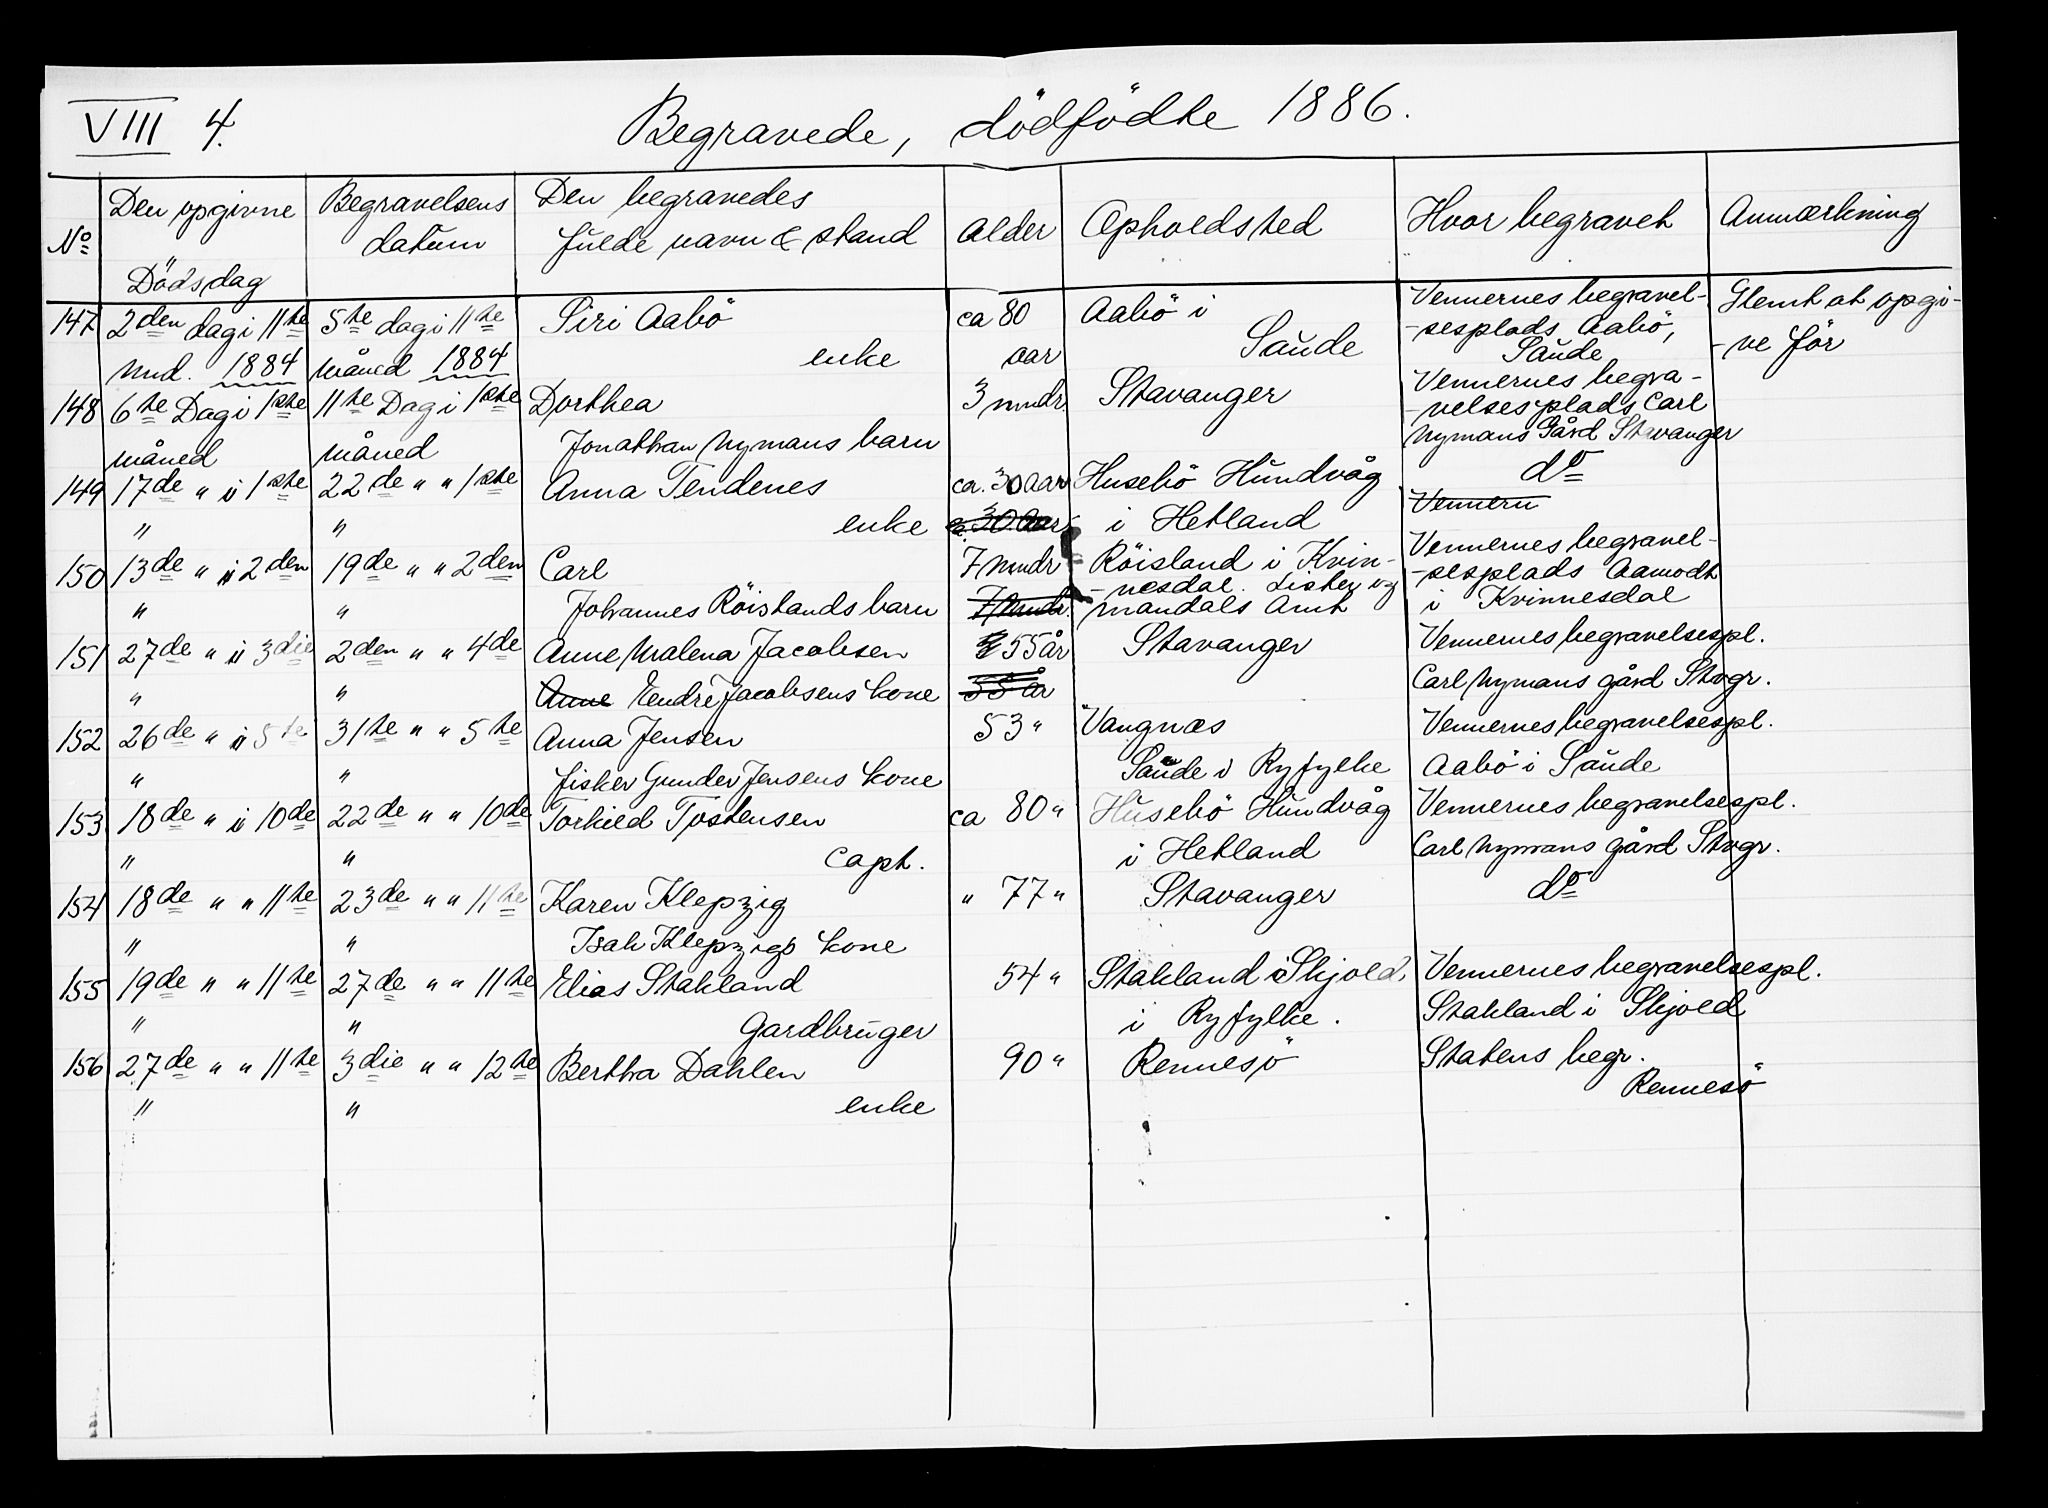 VIII 4.
Begravede, dödfödte 1886.
No
Den opgivne
Dödsdag
Begravelsens
datum
Den begravedes
fulde navn & stand
Alder
Opholdsted
Hvor begravet
Anmærkning
147 2den dag i 11te 5te dag i 11te Siri Aabö ca 80 Aabö i Vennernes begravel- Glemt at opgi-
mnd. 1884 måned 1884 enke aar Saude -sesplads Aabö, -ve för
Saude
148 6te Dag i 1ste 11te Dag i 1ste Dorthea 3 mndr. Stavanger Vennernes begra-
måned måned Jonathan Nymans barn -velsesplads Carl
Nymans Gård Stavanger
149 17de " i 1ste 22de " " 1ste Anna Tendenes ca. 30 aar Husebö Hundvåg do
" " enke ca. 30 aar i Hetland Vennern
150 13de " i 2den 19de " " 2den Carl 7 mndr Röisland i Kvin- Vennernes begravel-
-nesdal. Lister og -sesplads Aamodt
" " Johannes Röislands barn 7 mndr. Mandals Amt i Kvinnesdal
151 27de " i 3die 2den " " 4de Anne Malena Jacobsen 55 år Stavanger Vennernes begravelsespl.
" " Anne Endre Jacobsens kone 55 år Carl Nymans gård Stvgr.
152 26de " i 5te 31te " " 5te Anna Jensen 53 " Vangnæs Vennernes begravelsespl.
" " fisker Gunder Jensens kone Saude i Ryfylke Aabö i Saude
153 18de " i 10de 22de " " 10de Torkild Tostensen ca 80 " Husebö Hundvåg Vennernes begravelsespl.
" " Capt. i Hetland Carl Nymans gård Stvgr.
154 18de " " 11te 23de " " 11te Karen Klepzig " 77 " Stavanger do
" " Isak Klepzigs kone
155 19de " " 11te 27de " " 11te Elias Stakland 54 " Stakland i Skjold, Vennernes begravelsespl.
" " Gardbruger i Ryfylke. Stakland i Skjold
156 27de " " 11te 3die " " 12te Bertha Dahlen 90 " Rennesö Statens begr.
" " enke Rennesö